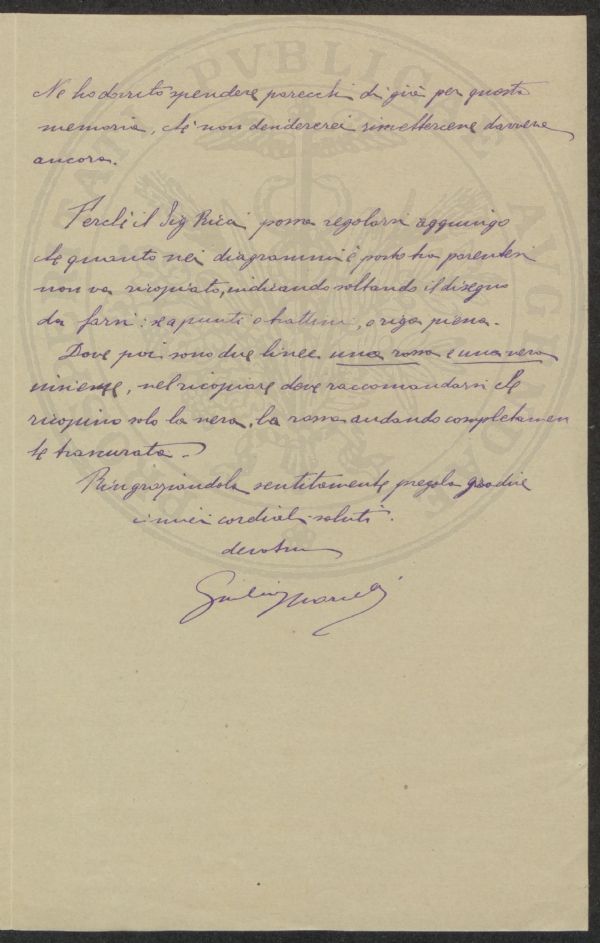 Ne ho dovuto spendere parecchi di già per questa
memoria, che non desidererei rimettercene davvero
ancora.
Perchè il Sig Ricci possa regolarsi aggiungo
che quanto nei diagrammi è posto tra parentesi
non va ricopiato, indicando soltando il disegno
da farsi: se a punti o trattini, o riga piena.
Dove poi sono due linee una rossa e una nera
insieme, nel ricopiare deve raccomandarsi che
ricopino solo la nera, la rossa andando completamen
te trascurata.
Ringraziandola sentitamente pregola gradire
i miei cordiali saluti.
devotmo
PVBLICAE